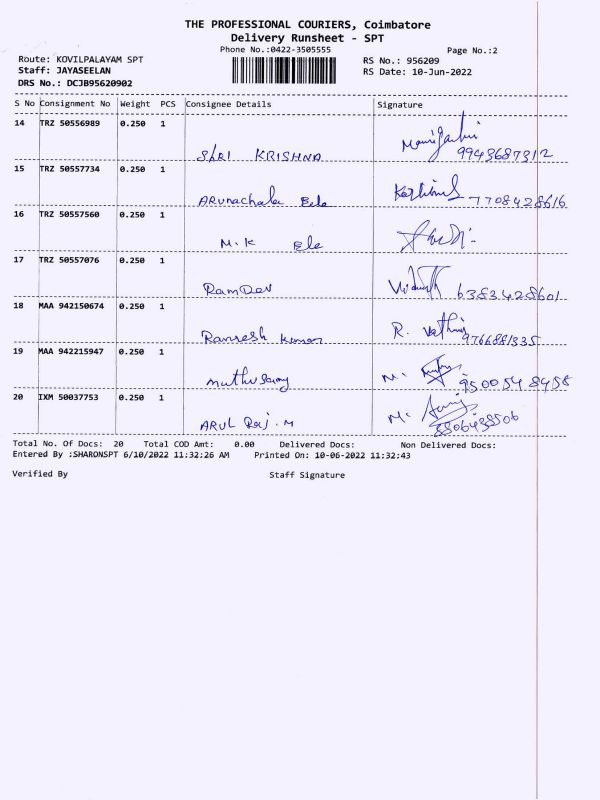 THE PROFESSIONAL COURIERS, Coimbatore
Delivery Runsheet - SPT
Phone No.:0422-3505555 Page No.:2
Route: KOVILPALAYAM SPT RS No.: 956209
Staff: JAYASEELAN RS Date: 10-Jun-2022
DRS No.: DCJB95620902
S No Consignment No Weight PCS Consignee Details Signature
14 TRZ 50556989 0.250 1
SHRI KRISHNA 9943687312
15 TRZ 50557734 0.250 1
Arunachala Ele 7708428616
16 TRZ 50557560 0.250 1
M.K Ele
17 TRZ 50557076 0.250 1
RAMDEV 6383428601
18 MAA 942150674 0.250 1 R.
Ramesh Kumar 9766881335
19 MAA 942215947 0.250 1 M.
Muthusamy 9500548458
20 IXM 50037753 0.250 1 M.
ARUL Raj.M
Total No. Of Docs: 20 Total COD Amt: 0.00 Delivered Docs: Non Delivered Docs:
Entered By :SHARONSPT 6/10/2022 11:32:26 AM Printed On: 10-06-2022 11:32:43
Verified By Staff Signature